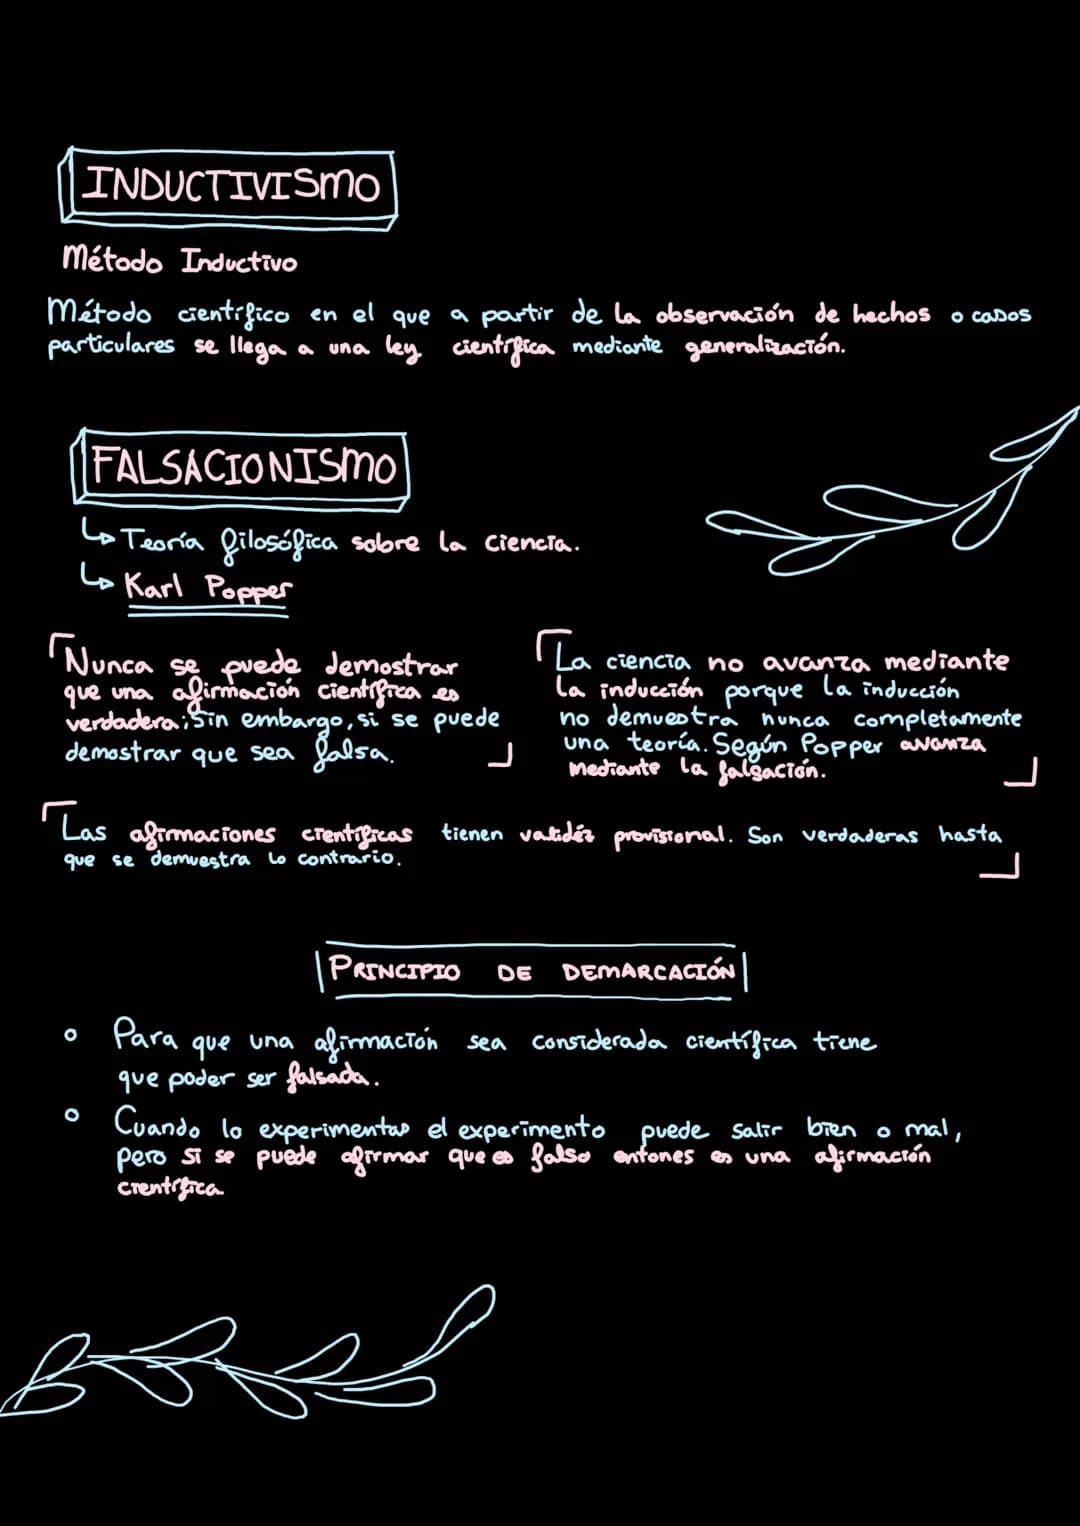 INDUCTIVISMO
Método Inductivo
Método científico en el que a partir de la observación de hechos o casos
particulares se llega a una ley científica mediante generalización.
FALSACIONISMO
↳ Teoría filosófica sobre la ciencia.
↳ Karl Popper
Nunca se puede demostrar
que una afirmación científica es
verdadera; Sin embargo, si se puede
demostrar que sea falsa.
La ciencia no avanza mediante
la inducción porque la inducción
no demuestra nunca completamente
una teoría. Según Popper avanza
mediante la falsación.
Las afirmaciones científicas tienen validéz provisional. Son verdaderas hasta
que se demuestra lo contrario.
PRINCIPIO DE DEMARCACIÓN
Para que una afirmación sea considerada científica tiene
que poder ser falsada.
Cuando lo experimentas el experimento puede salir bien o mal,
pero si se puede afirmar que es falso entones es una afirmación
científica.